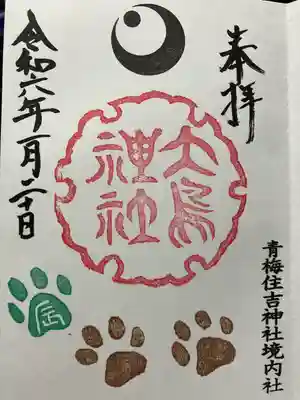 奉拝
大鳥
神社
令和六年一月二十日
辰
青梅住吉神社境内社